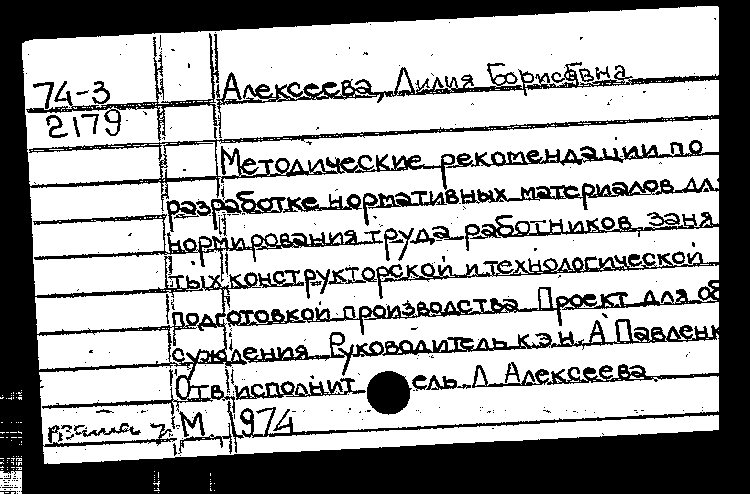 74-3
2179
Алексеева, Лилия Борисовна
Методические рекомендации по
разработке нормативных материалов для
нормирования труда работников, заня
тых конструкторской и технологической
подготовкой производства Проект для об
суждения Руководитель к.э.н. А Павленк
Отв исполнит ель Л Алексеева
М 1974